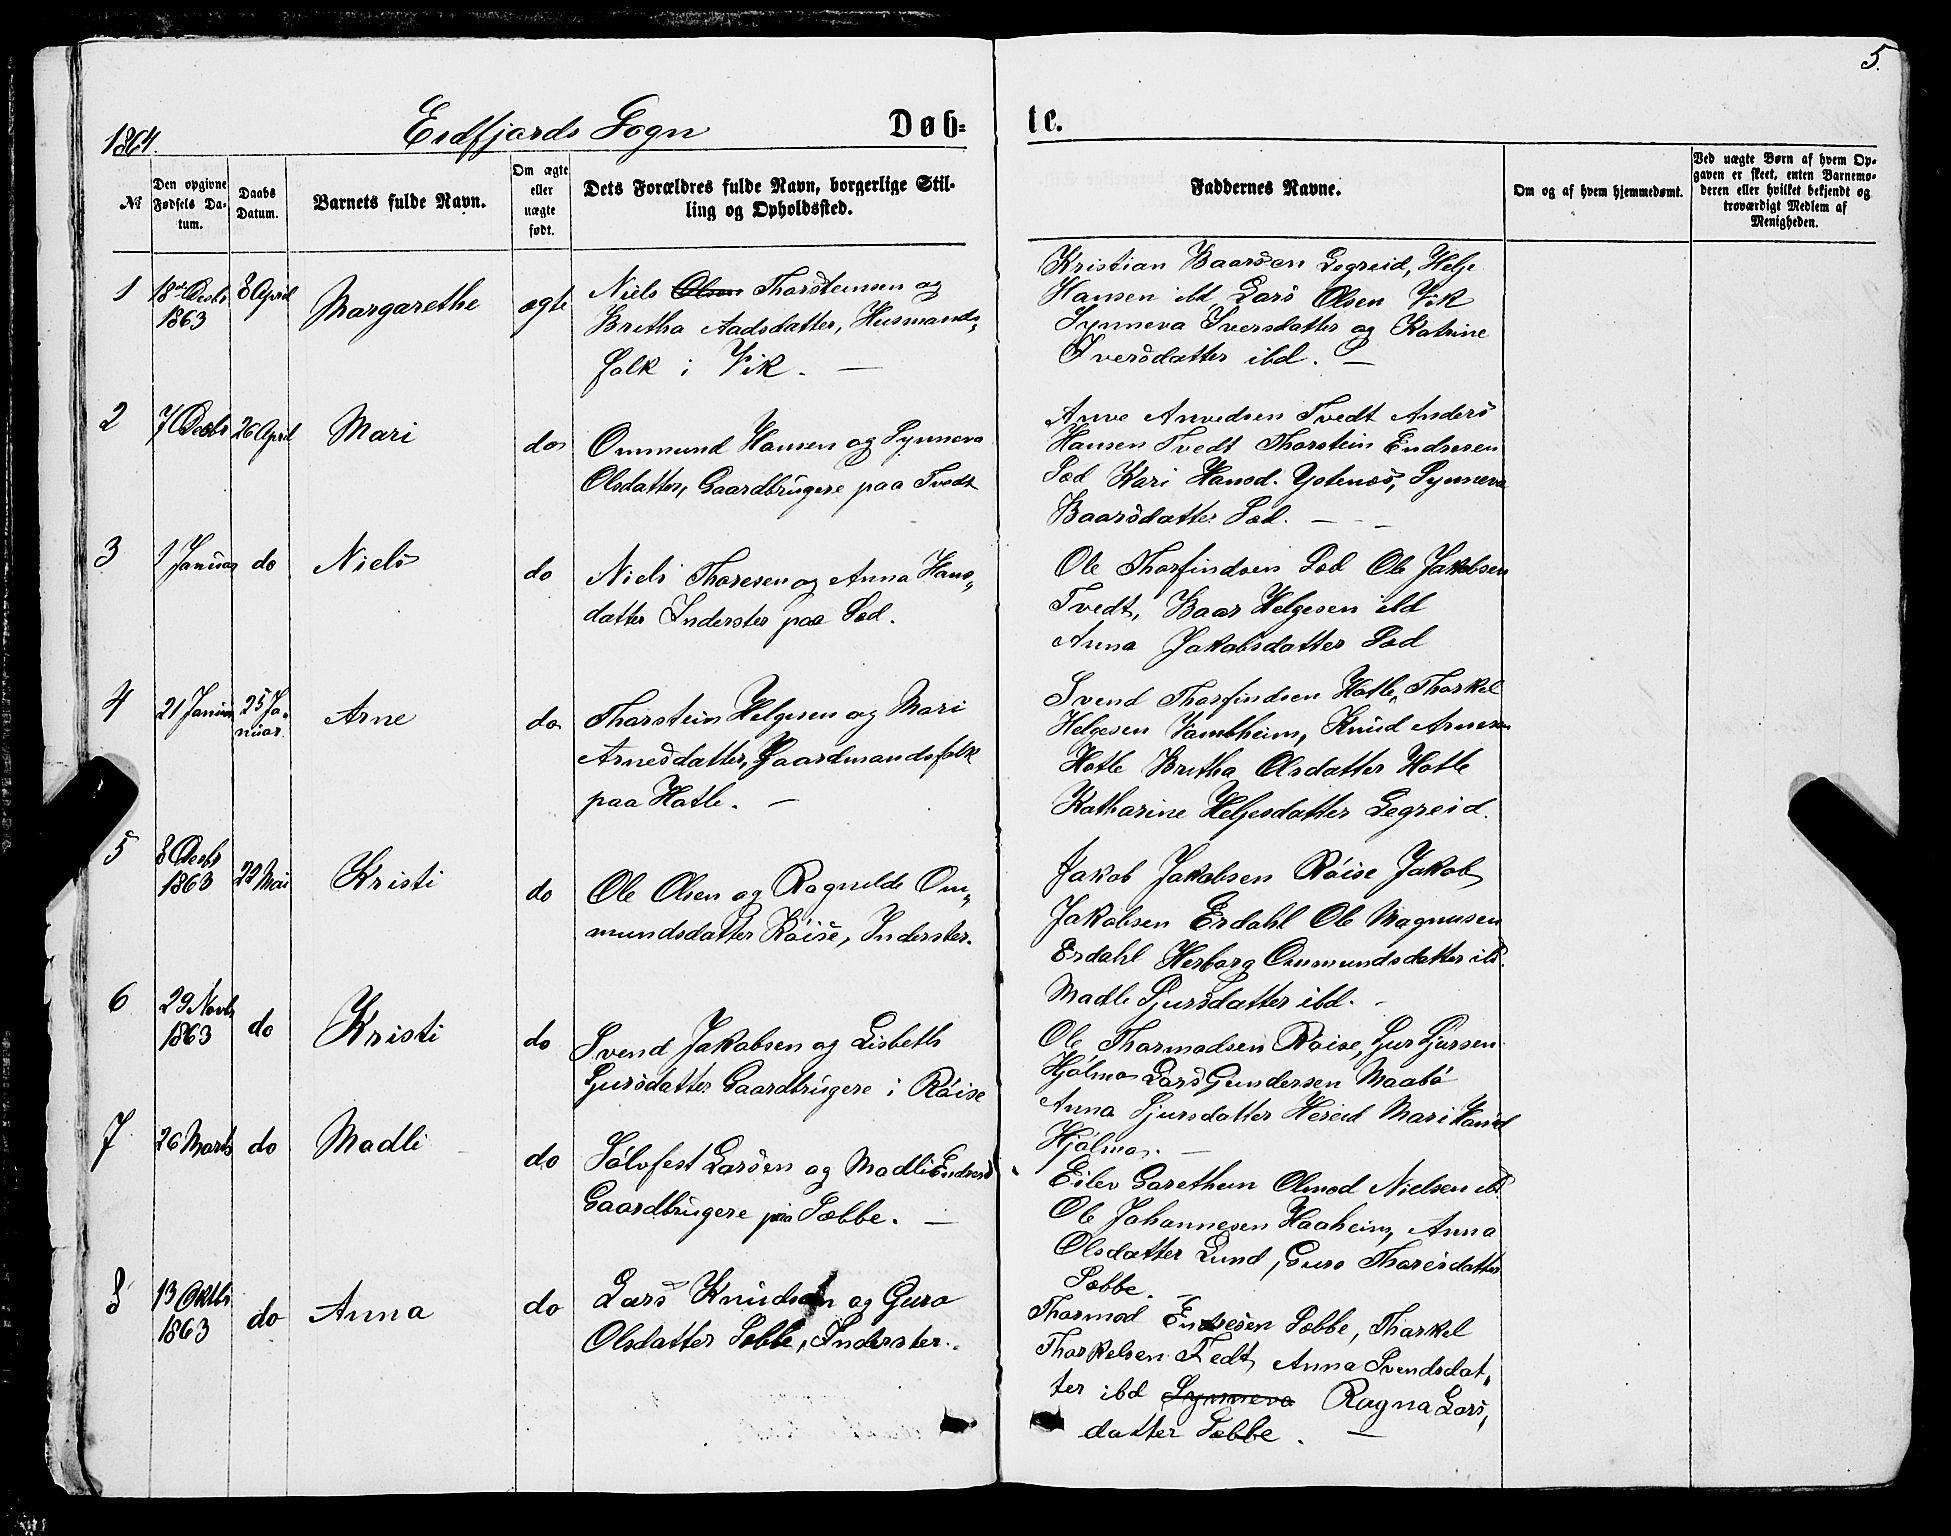 5.
1864.
Eidfjords Sogn
Døb-
te.
№
Den opgivne Fødsels Da-
tum.
Daabs
Datum.
Barnets fulde Navn.
Om ægte
eller
uægte
født.
Dets Forældres fulde Navn, borgerlige Stil-
ling og Opholdssted.
Faddernes Navne.
Om og af hvem hjemmedømt.
Ved uægte Børn af hvem Op-
gaven er skeet, enten Barnemo-
deren eller hvilket bekjendt og
troværdigt Medlem af
Menigheden.
1
18de Decbr
1863
8 April
Margarethe
ægte
Niels Olsen Thorsteinsen og
Britha Aadsdatter, Husmands-
folk i Vik. —
Kristian Baarsen Legreid, Helje
Hansen ibd, Lars Olsen Vik
Synneva Iversdatter og Katrine
Iversdatter ibd. —
2
7 Decbr
26 April
Mari
do
Ommund Hansen og Synneva
Olsdatter, Gaardbrugere paa Tvedt
Anve Anvedsen Tvedt Anders
Hansen Tvedt Thorstein Endresen
Sæd Kari Hansd. Ystenæs, Synneva
Baarsdatter Sæd. — - —
3
1 Januar
do
Niels
do
Niels Thoresen og Anna Hans-
datter Inderster paa Sæd.
Ole Thorfindsen Sæd Ole Jakobsen
Tvedt, Baar Helgesen ibd
Anna Jakobsdatter Sæd
4
21 Januar
25 Ja-
nuar.
Arne
do
Thorstein Helgesen og Mari
Arnesdatter, Gaardmandsfolk
paa Hotle. —
Svend Thorfindsen Hotle, Thorkel
Helgesen Vambheim, Knud Arnesen
Hotle Britha Olsdatter Hotle
Katharine Heljesdatter Legreid.
5
8 Decbr
1863
22 Mai
Kristi
do
Ole Olsen og Ragnilde Om-
mundsdatter Røise, Inderster.
Jakob Jakobsen Røise Jakob
Jakobsen Erdahl Ole Magnusen
Erdahl Herborg Ommundsdatter ibd.
Madli Sjursdatter ibd. -
6
29 Novbr
1863
do
Kristi
do
Svend Jakobsen og Lisbeth
Sjursdatter Gaardbrugere i Røise
Ole Thormodsen Røise, Sjur Sjursen
Hjølmo Lars Gundersen Maabø
Anna Sjursdatter Hereid Mari Hansd
Hjølmo. —
7
26 Marts
do
Madli
do
Sølvfest Larsen og Madli Endresd
Gaardbrugere paa Sæbbe. —
Eilev Garethun Olmod Nielsen ibd
Ole Johannesen Haaheim, Anna
Olsdatter Lund, Guro Thoresdatter
Sæbbe. —
8
13 Oktbr
1863
do
Anna
do
Lars Knudsen og Guro
Olsdatter Sæbbe, Inderster.
Thormod Endresen Sæbbe, Thorkel
Thorkelsen Fedt, Anna Svendsdat-
ter ibd Synneva Ragna Lars-
datter Sæbbe. —